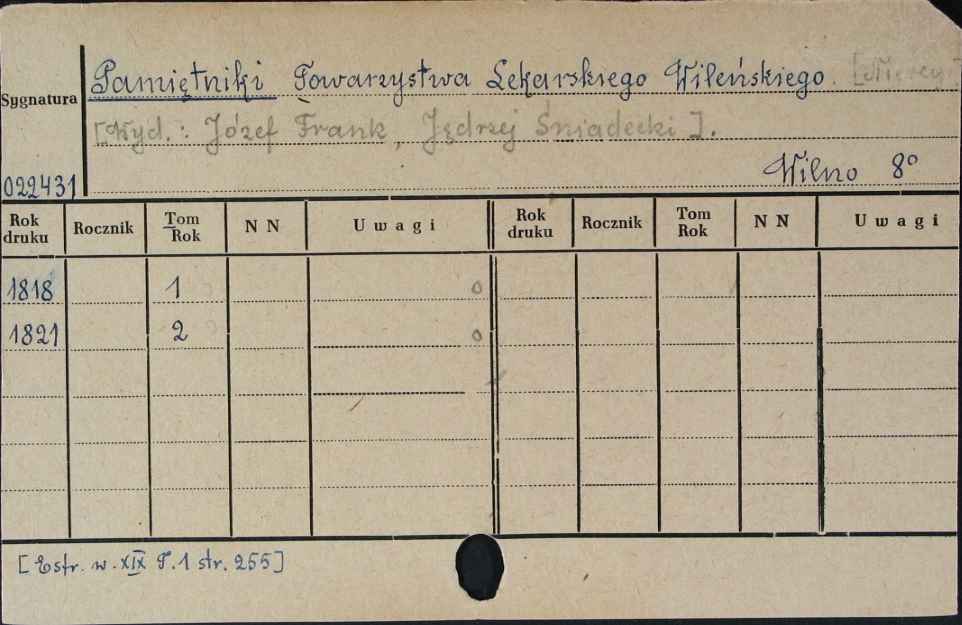 Pamiętniki Towarzystwa Lekarskiego Wileńskiego.
Sygnatura
[Wyd.: Józef Frank, Jędrzej Śniadecki].
022431 Wilno 8°
Rok druku Rocznik Tom Rok N N Uwagi Rok druku Rocznik Tom Rok N N Uwagi
1818 1 0
1821 2 0
[Estr. w. XIX T.1 str. 255]